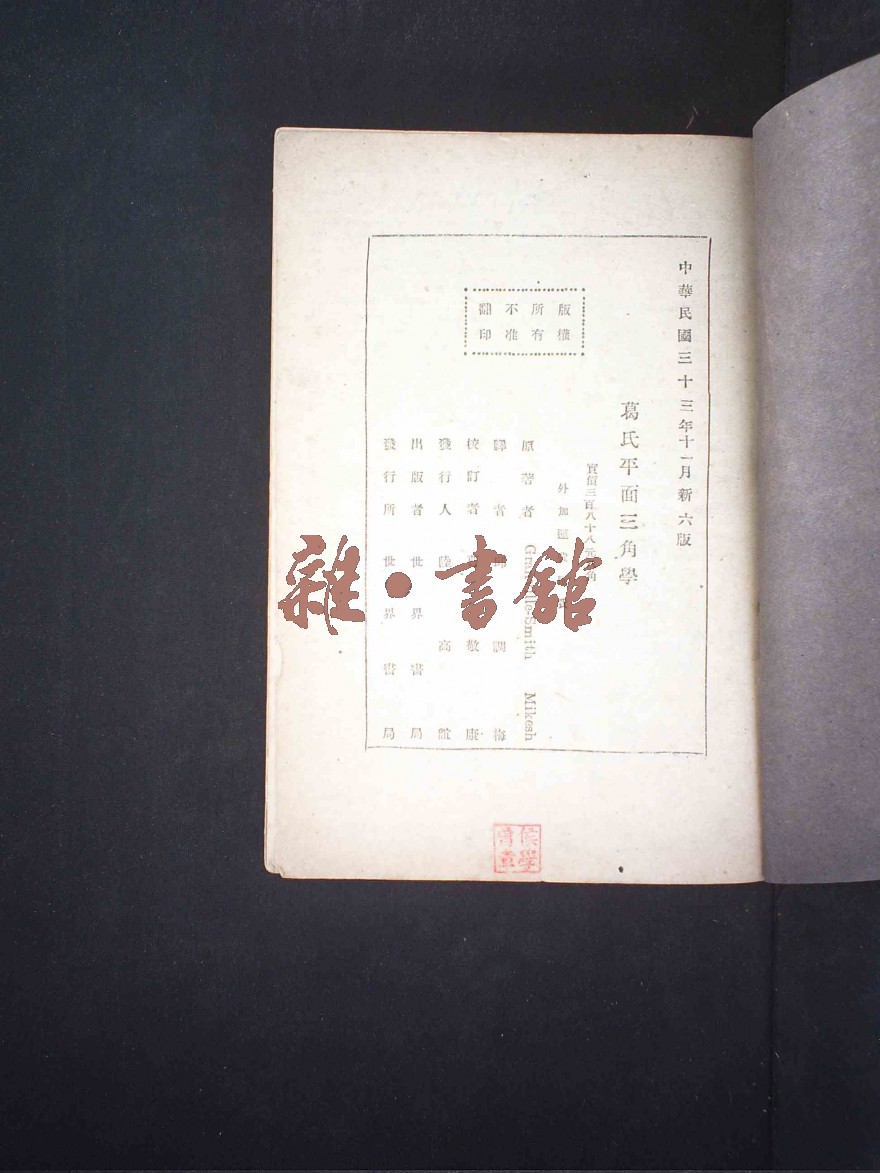 中華民國三十三年十一月新六版
葛氏平面三角學
實價三百八十八元角
外加
版權
所有
不准
翻印
原著者 Smith Mikesh
譯者 調梅
校訂者 敬康
發行人 陸高誼
出版者 世界書局
發行所 世界書局
雜·書館